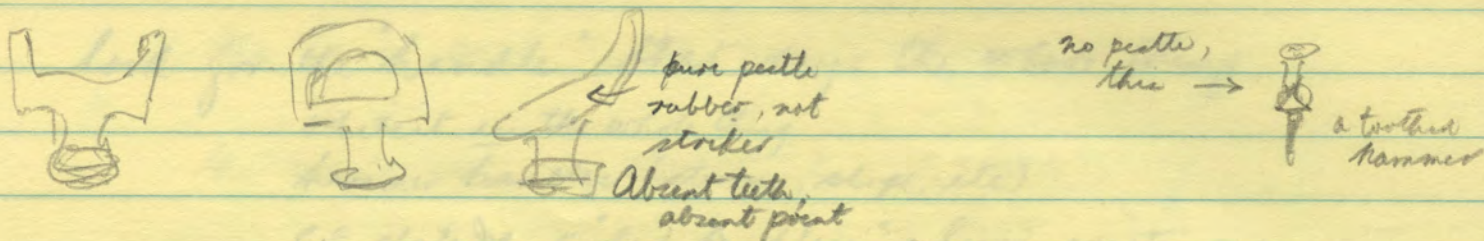 pure pestle
rubber, not
striker
Absent teeth,
absent point
no pestle,
this →
a toothed
hammer